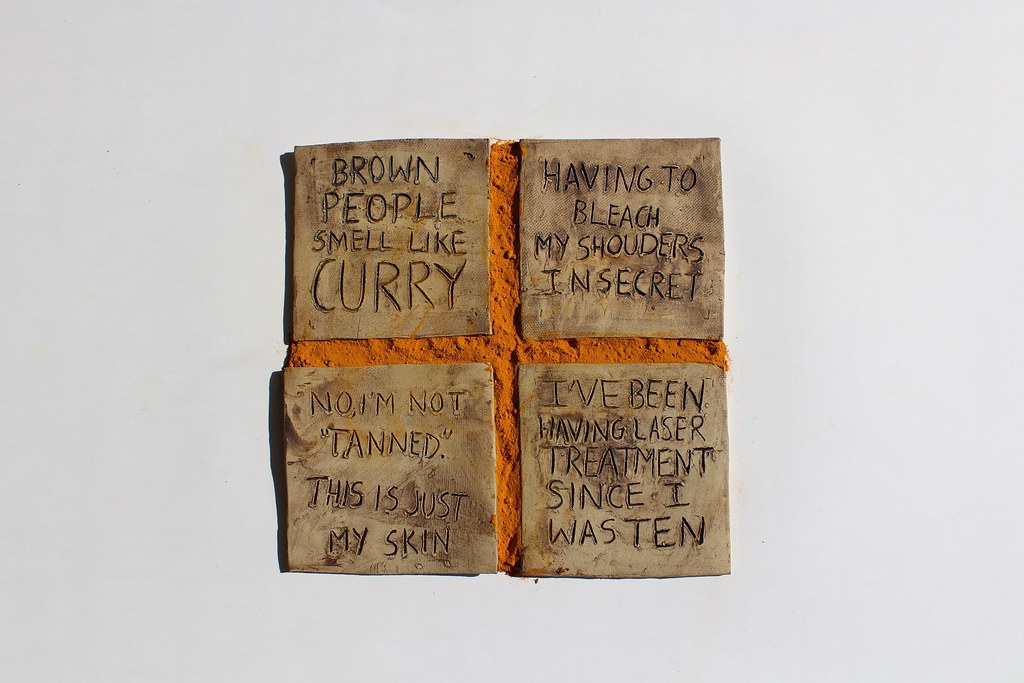 BROWN
PEOPLE
SMELL LIKE
CURRY
HAVING TO
BLEACH
MY SHOUDERS
IN SECRET
NO, I'M NOT
"TANNED."
THIS IS JUST
MY SKIN
I'VE BEEN
HAVING LASER
TREATMENT
SINCE I
WAS TEN